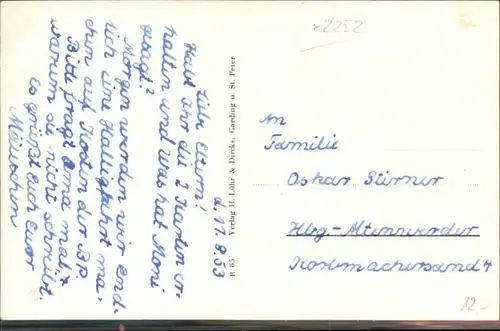 *2252
d. 17.8.53
Liebe Eltern!
Habt Ihr die 2 Karten er-
halten und Was hat Moni
gesagt?
Morgen werden wir end-
lich eine Halligfahrt ma-
chen auf Kosten der BP.
Bitte fragt Oma mal,
warum sie nicht schreibt.
Es grüßt Euch Euer
Mäuschen
R 55 Verlag H. Lühr & Dircks, Garding u. St. Peter
An
Familie
Oskar Stürner
Hbg.-Altenwerder
Korbmachersand 4
12.-